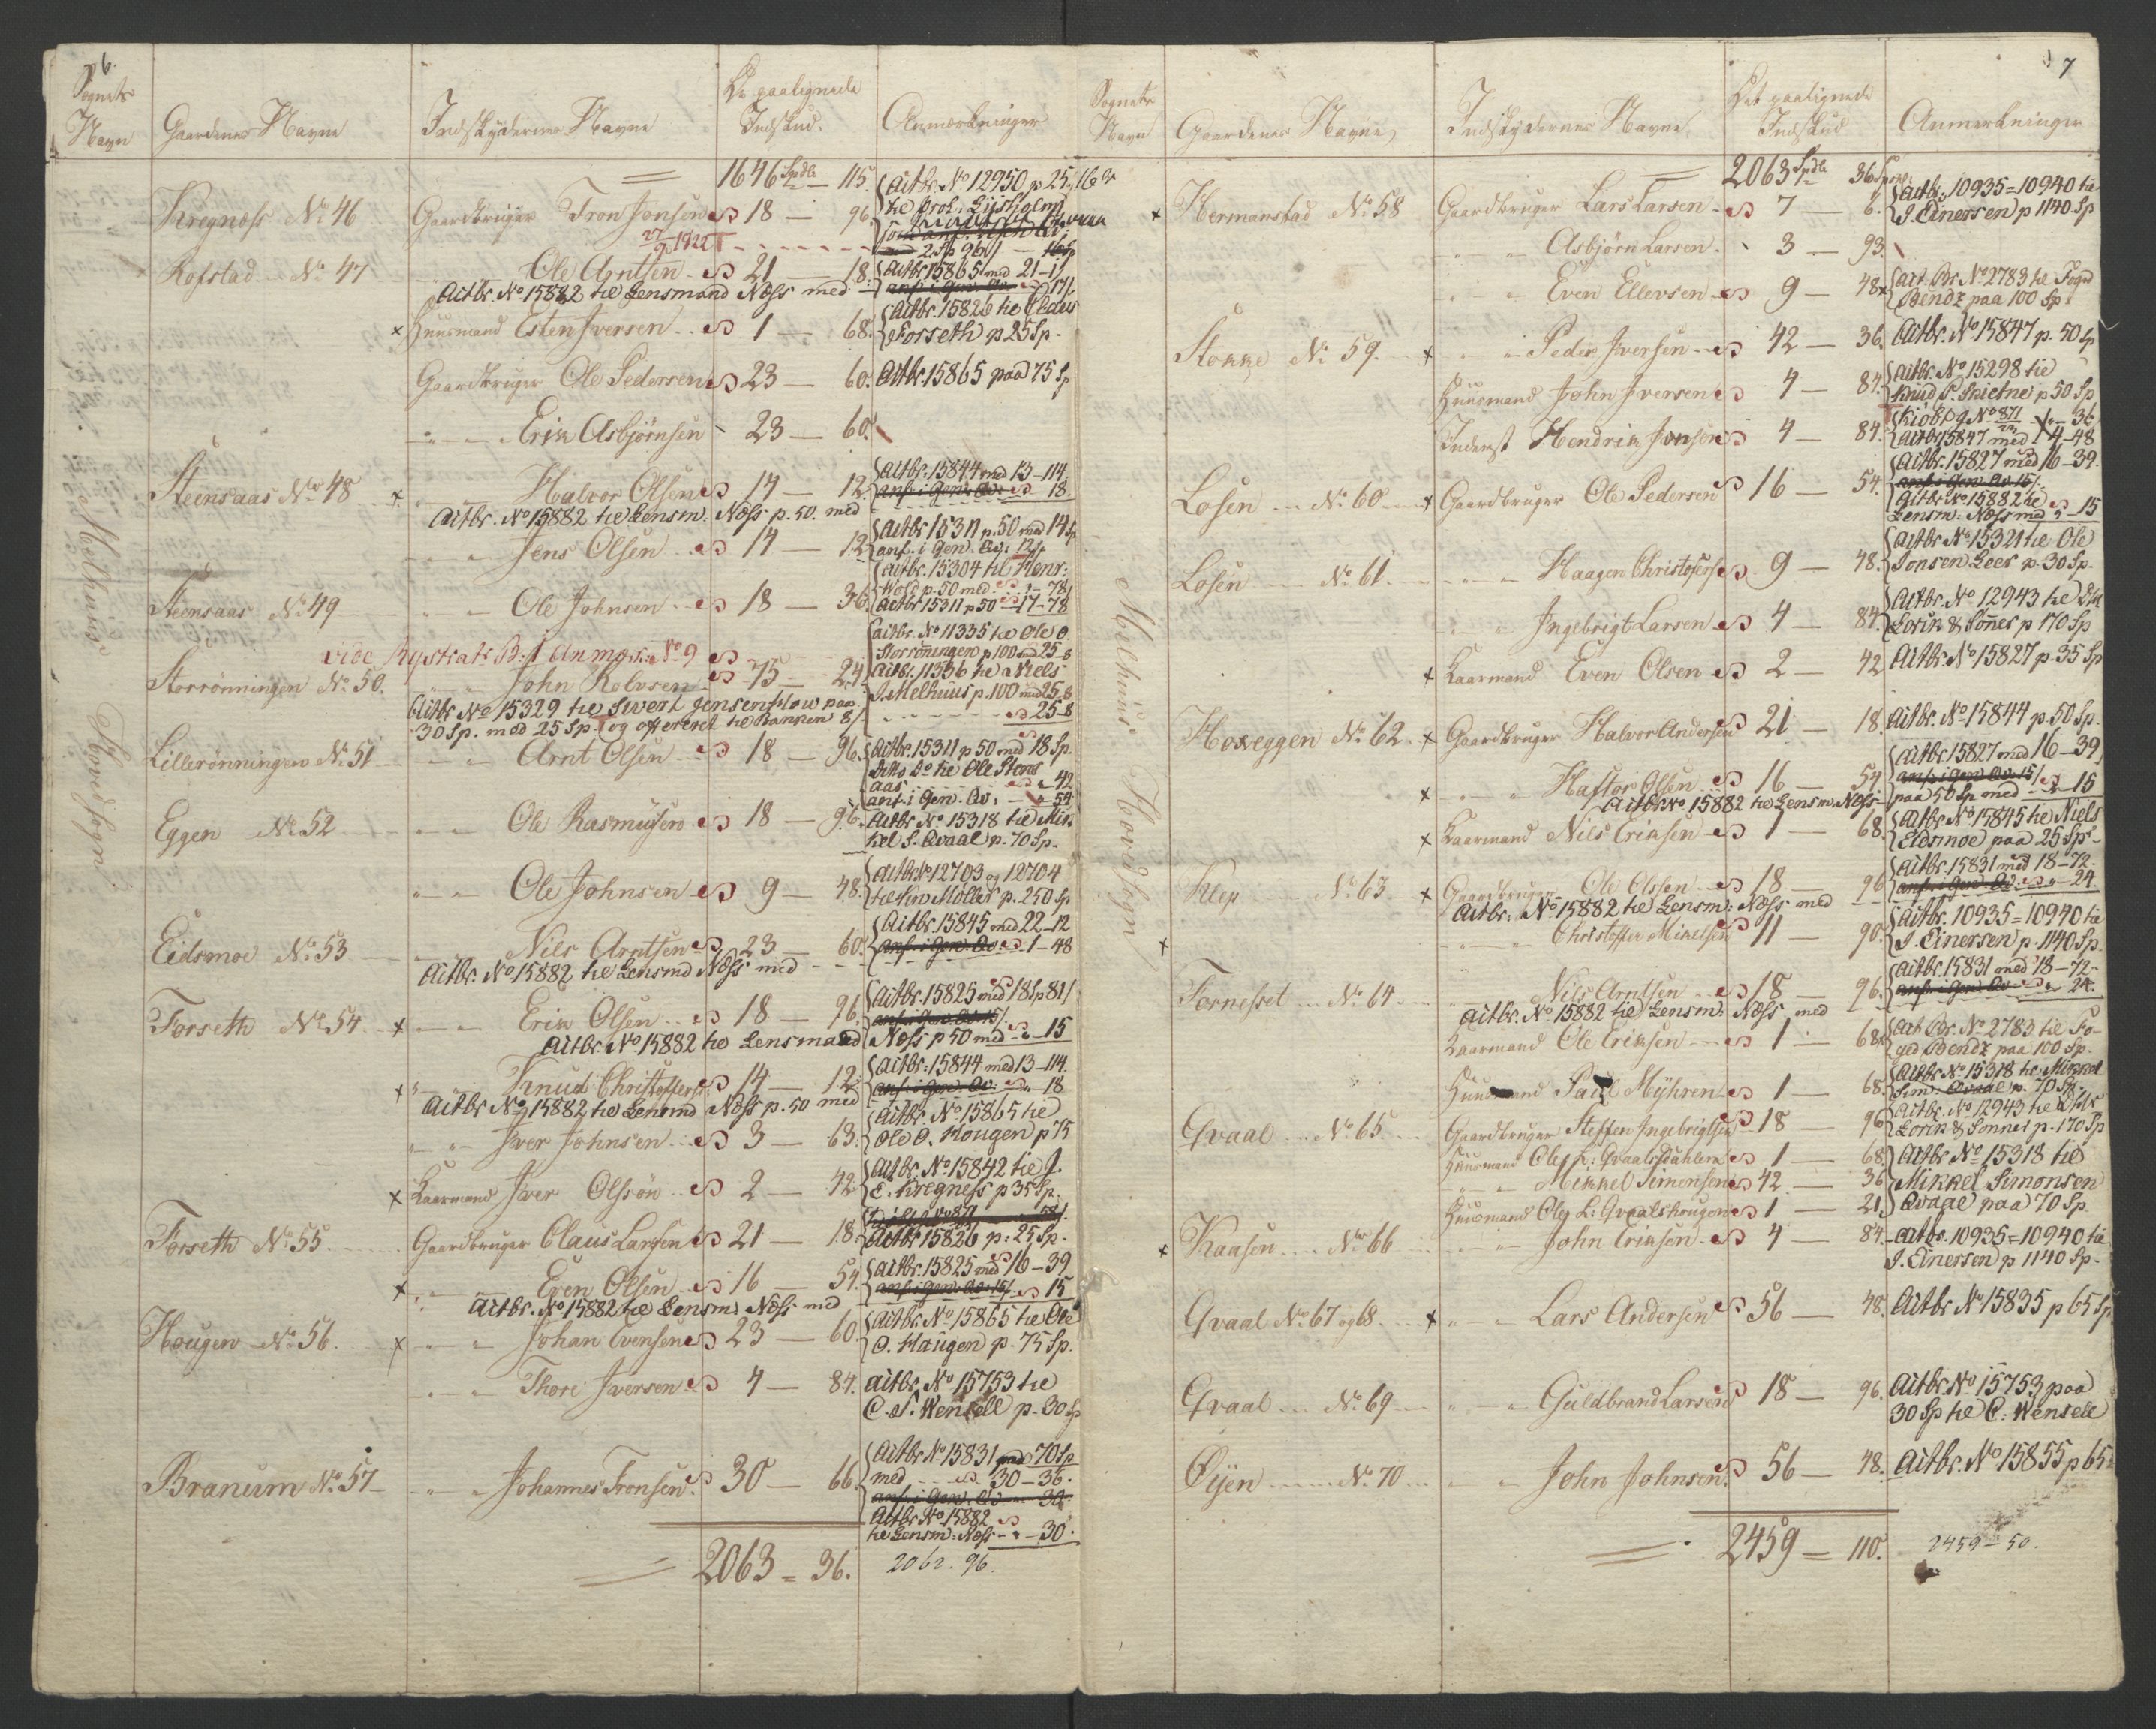 6.
Sognets Navn
Gaardenes Navne
Indskydernes Navne
De paalignede Indskud.
Anmærkninger
1646 Spdlr — 115.
Melhuus Hovedsogn
Kregness No 46 Gaardbruger Tron Jonsen 18 — 96. Actbr. No 12950 p 25, 16 sp
te Prok. Lysholm
27/9 1822
med 2 Sp 96 /
Rofstad No 47 Ole Arntsen 21 — 18. Actbr 15865 med 21-1
Actbr. No 15882 te Lensmand Næss med — ansf. i Gen. Qv. 17/
x Huusmand Esten Iversen 1 — 68. Actbr. 15826 te Claus Forseth p 25 Sp.
Gaardbruger Ole Pedersen 23 — 60. Actbr. 15865 paa 75 Sp
" " Erik Asbjørnsen 23 — 60.
Steensaas No 48 x Halvor Olsen 14 — 12. Actbr. 15844 med 13-114.
ansf. i Gen. Qv. 18
Actbr. No 15882 te Lensm. Næss p. 50. med
" " Jens Olsen 14 — 12. Actbr 15311 p. 50 med 14 Sp
ansf. i Gen. Qv: 12/
Steensaas No 49 " " Ole Johnsen 18 — 36. Actbr. 15304 til Henr:
Wold p. 50 med " - 78
Actbr 15311 p 50 17-78
vide Rystrat: B: 1 Anmærk: No 9
Storrönningen No 50. John Rolvsen 75 — 24. Actbr. No 11335 te Ole O.
Storrönningen p 100 med 25-8
Actbr. 11336 te a Niels
J. Melhuus p. 100 med 25-8
25-8
Actbr No 15329 te Sivert Jensen Flow paa
30 Sp. med 25 Sp. og offereret te Banken 8/
Lillerönningen No 51 " " Arnt Olsen 18 — 96. Actbr. 15311 p 50 med 18 Sp.
Ditto Do te Ole Stensaas " 42
ansf. i Gen. Qv: " 54
Eggen No 52 " " Ole Rasmusen 18 — 96. Actbr No 15318 te Mikkel S. Qvaal p. 70 Sp.
" " Ole Johnsen 9 — 48. Actbr No 12703 og 12704
te Møller p. 250 Sp
Eidsmoe No 53 Nils Arntsen 23 — 60. Actbr. 15845 med 22-12
ansf. i Gen. Qv. 1-48
Actbr. No 15882 te Lensmd Næss med
Forseth No 54 x " " Erik Olsen 18 — 96. Actbr. 15825 med 18 Sp 81/
ansf. i Gen. Qv. 15/
Actbr. No 15882 te Lensmand Næss p 50 med " 15
x " Knud Christoffers: 14 — 12. Actbr. 15844 med 13-114.
ansf. i Gen. Qv. " 18
Actbr No 15882 te Lensmd Næss p. 50 med
" " Iver Johnsen 3 — 63. Actbr. No 15865 te
Ole O. Hougen p 75
x Kaarmand Iver Olssön 2 — 42 Actbr. No 15842 til J.
E. Kregness p 35 Sp.
Forseth No 55. Gaardbruger Claus Larsen 21 — 18. Actbr 15826 p: 25 Sp.
x " Even Olsen 16 — 54. Actbr. 15825 med 16-39
ansf. i Gen. Qv. 15/ 15
Actbr. No 15882 te Lensm: Næss med
Hougen No 56. x " " Johan Evensen 23 — 60. Actbr. No 15865 te Ole
O. Haugen p. 75 Sp.
" " Thore Iversen 4 — 84. Actbr. No 15753 te
C. N. Wensell p. 30 Sp
Branum No 57 " " Johannes Tronsen 30 — 66. Actbr No 15831 med 70 Sp
med 30-36.
ansf. i Gen. Qv. 30
Actbr No 15882
te Lensm: Næss - " - 30.
2063 = 36. 2062. 96.
7
Sognets Navn
Gaardenes Navne
Indskydernes Navne
Det paalignede Indskud
Anmærkninger
2063 Spdlr 36
Melhuus Hovedsogn
x Hermanstad No 58 Gaardbruger Lars Larsen 7 — 6. Actbr. 10935=10940 te
J. Einersen p 1140 Sp
" " Asbjørn Larsen 3 — 93.
" " Even Ellevsen 9 — 48 x Act Br. No 2783 te Foged
Bendz paa 100 Sp.
Stokke No 59. x " " Peder Iversen 42 — 36. Actbr. No 15847 p. 50 Sp
Huusmand John Iversen 4 — 84. Actbr. No 15298 te
Knud P. Skietne p 50 Sp
Inderst Hendrik Jonson 4 — 84. Kiøbtg No 871 " - 36
Actbr 15847 med 4-48
Losen No 60 x Gaardbruger Ole Pedersen 16 — 54. Actbr. 15827 med 16-39.
ansf. i Gen. Qv 15/
Actbr No 15882 te
Lensm: Næss med " 15
Losen No 61 " " Haagen Christofers: 9 — 48. Actbr No 15321 te Ole
Jonsen Leer p. 30 Sp.
" " Ingebrigt Larsen 4 — 84. Actbr. No 12943 te
Lorik & Sönner p 170 Sp
x Kaarmand Even Olsen 2 — 42 Actbr. No 15827 p. 35 Sp
Hoxeggen No 62 x Gaardbruger Halvor Andersen 21 — 18. Actbr. No 15844 p. 50 Sp.
x " " Haftor Olsen 16 — 54. Actbr 15827 med 16-39
ansf. i Gen. Qv. 15/ 15
Actbr No 15882 te Lensm. Næss paa 50 Sp med " 15
x Kaarmand Nils Eriksen 1 — 68. Actbr No 15845 te Niels
Eidsmoe paa 25 Sp.
Klep No 63 x Gaardbruger Ole Olssen 18 — 96 Actbr. 15831 med 18-72
ansf. i Gen. Qv. " 24
Actbr: No 15882 te Lensm: Næss med
x " " Christoffer Mikelsen 11 — 90. Actbr. 10935=10940 te
J. Einersen p. 1140 Sp.
Fornesset No 64 Nils Arntsen 18 — 96. Actbr. 15831 med 18-72-
ansf. i Gen. Qv " 24.
Actbr. No 15882 te Lensm: Næss med
Kaarmand Ole Eriksen 1 — 68. Act Br. No 2783 te Foged Bendz paa 100 Sp.
Huusmand Paul Myhren 1 — 68. Actbr No 15318 te Mikkel
Sim: Qvaal p. 70 Sp.
Qvaal No 65. Gaardbruger Steffen Ingebrigtsen 18 — 96 Actbr. No 12943 te
Lorik & Sonner p. 170 Sp
Huusmand Ole L: Qvaalsdahlem 1 — 68. Actbr No 15318 te
" " Mikkel Simensen 42 — 36 Mikkel Simonsen
Huusmand Ole L: Qvaalshougen 1 — 21. Qvaal paa 70 Sp.
x Kaasen No 66 " " John Eriksen 4 — 84. Actbr. 10935=10940 te
J. Einersen p 1140 Sp.
Qvaal No 67 og 68. x " " Lars Andersen 56 — 48. Actbr No 15835 p 65 Sp
Qvaal No 69 " " Guldbrand Larsen 18 — 96. Actbr No 15753 paa
30 Sp te C. Wensell
Øijen No 70 " " John Johnsen 56 — 48. Actbr. No 15855 p 65
2459 = 110. 2459 = 50.